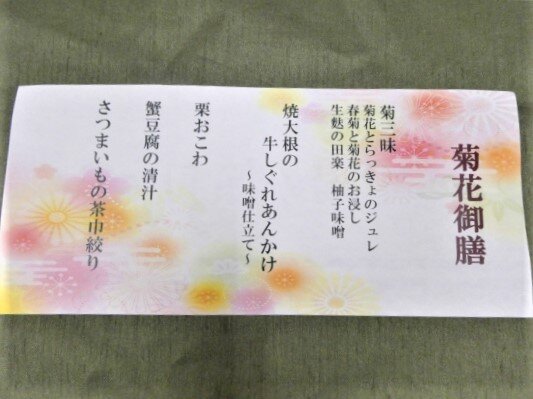 菊花御膳
菊三味
菊花とらっきょのジュレ
春菊と菊花のお浸し
生麩の田楽 柚子味噌
焼大根の
牛しぐれあんかけ
～味噌仕立て～
栗おこわ
蟹豆腐の清汁
さつまいもの茶巾絞り